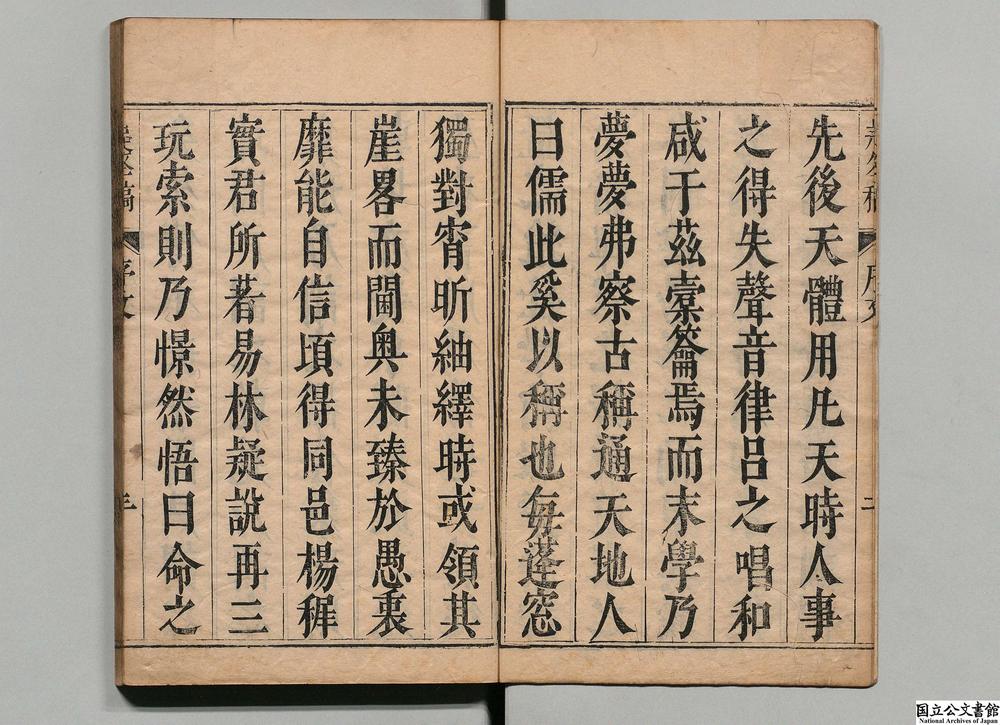 先後天體用凡天時人事
之得失聲音律呂之唱和
咸于茲橐籥焉而末學乃
夢夢弗察古稱通天地人
曰儒此奚以稱也每蓬窓
獨對宵昕紬繹時或領其
崖畧而閫奥未臻於愚衷
靡能自信頃得同邑楊穉
實君所著易林疑說再三
玩索則乃憬然悟曰命之
序文
二
国立公文書館
National Archives of Japan